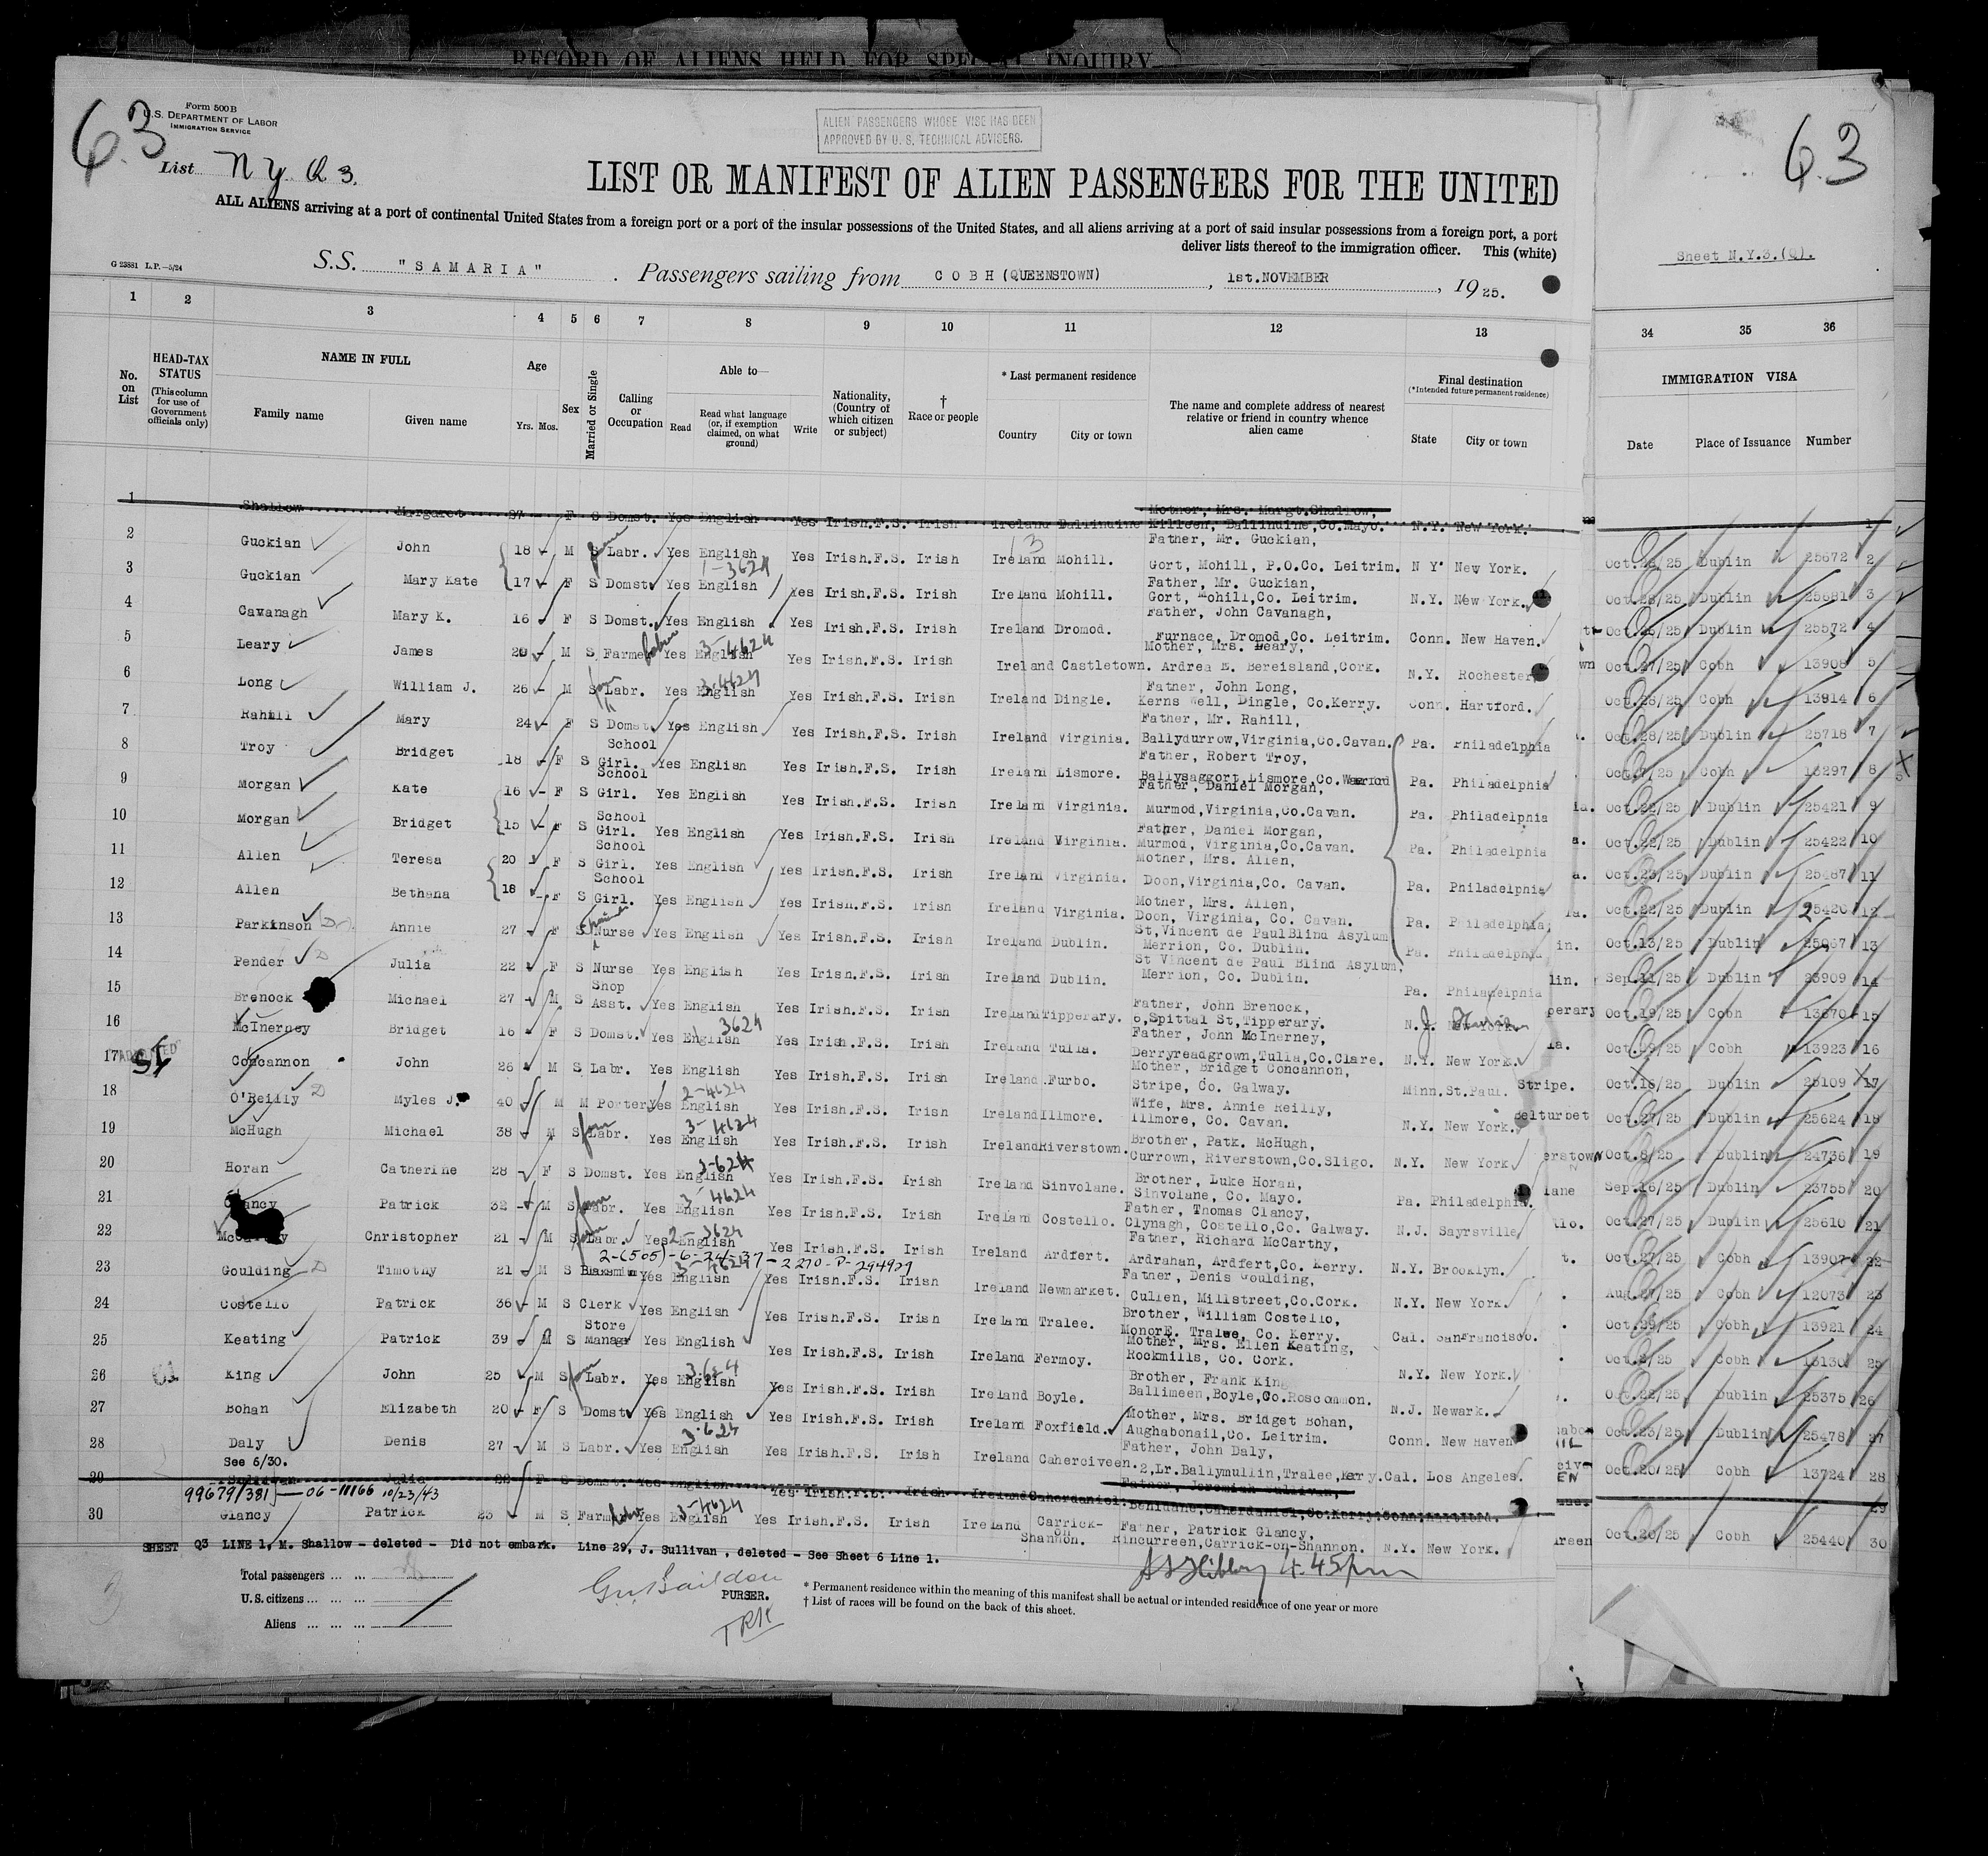 RECORD OF ALIENS HELD FOR SPECIAL INQUIRY
63
Form 500B
U.S. DEPARTMENT OF LABOR
IMMIGRATION SERVICE
ALIEN PASSENGERS WHOSE VISE HAS BEEN
APPROVED BY U. S. TECHNICAL ADVISERS.
63
List N Y Q 3.
LIST OR MANIFEST OF ALIEN PASSENGERS FOR THE UNITED
ALL ALIENS arriving at a port of continental United States from a foreign port or a port of the insular possessions of the United States, and all aliens arriving at a port of said insular possessions from a foreign port, a port
deliver lists thereof to the immigration officer. This (white)
Sheet N.Y.3.(Q).
G 23881 L.P.—5/24
S.S. "SAMARIA". Passengers sailing from COBH (QUEENSTOWN), 1st.NOVEMBER, 1925.
1 2 3 4 5 6 7 8 9 10 11 12 13 34 35 36
No. on List
HEAD-TAX STATUS (This column for use of Government officials only)
NAME IN FULL
Family name Given name
Age
Yrs. Mos.
Sex
Married or Single
Calling or Occupation
Able to—
Read Read what language (or, if exemption claimed, on what ground) Write
Nationality, (Country of which citizen or subject)
† Race or people
* Last permanent residence
Country City or town
The name and complete address of nearest relative or friend in country whence alien came
Final destination
(*Intended future permanent residence)
State City or town
IMMIGRATION VISA
Date Place of Issuance Number
1 Shallow Margaret 27 F S Domst. Yes English Yes Irish.F.S. Irish Ireland Ballinuine Mother, Mrs. Margt.Shallow, Killeen, Ballinuine,Co.Mayo. N.Y. New York. 1
2 Guckian John 18 M S Labr. Yes English Yes Irish.F.S. Irish Ireland Mohill. Father, Mr. Guckian, Gort, Mohill, P.O.Co. Leitrim. N Y New York. Oct.28/25 Dublin 25672 2
3 Guckian Mary Kate 17 F S Domst Yes English Yes Irish.F.S. Irish Ireland Mohill. Father, Mr. Guckian, Gort, Mohill,Co. Leitrim. N.Y. New York. Oct.28/25 Dublin 25681 3
4 Cavanagh Mary K. 16 F S Domst. Yes English Yes Irish.F.S. Irish Ireland Dromod. Father, John Cavanagh, Furnace, Dromod,Co. Leitrim. Conn. New Haven. Oct.26/25 Dublin 25572 4
5 Leary James M S Farmer Yes English 3-4624 Yes Irish.F.S. Irish Ireland Castletown. Mother, Mrs. Leary, Ardrea E. Bereisland,Cork. N.Y. Rochester Oct.27/25 Cobh 13908 5
6 Long William J. 26 M S Labr. Yes English 3-4624 Yes Irish.F.S. Irish Ireland Dingle. Father, John Long, Kerns Well, Dingle, Co.Kerry. Conn. Hartford. Oct.28/25 Cobh 13914 6
7 Rahill Mary 24 F S Domst Yes English Yes Irish.F.S. Irish Ireland Virginia. Father, Mr. Rahill, Ballydurrow,Virginia,Co.Cavan. Pa. Philadelphia Oct.28/25 Dublin 25718 7
8 Troy Bridget 18 F S School Girl. Yes English Yes Irish.F.S. Irish Ireland Lismore. Father, Robert Troy, Ballysaggort,Lismore,Co. Pa. Philadelphia Oct.7/25 Cobh 13297 8
9 Morgan Kate 16 F S School Girl. Yes English Yes Irish.F.S. Irish Ireland Virginia. Father, Daniel Morgan, Murmod,Virginia,Co.Cavan. Pa. Philadelphia Oct.22/25 Dublin 25421 9
10 Morgan Bridget 15 F S School Girl. Yes English Yes Irish.F.S. Irish Ireland Virginia. Father, Daniel Morgan, Murmod, Virginia,Co.Cavan. Pa. Philadelphia Oct.22/25 Dublin 25422 10
11 Allen Teresa 20 F S School Girl. Yes English Yes Irish.F.S. Irish Ireland Virginia. Mother, Mrs. Allen, Doon,Virginia,Co. Cavan. Pa. Philadelphia Oct.23/25 Dublin 25487 11
12 Allen Bethana 18 F S School Girl. Yes English Yes Irish.F.S. Irish Ireland Virginia. Mother, Mrs. Allen, Doon, Virginia, Co. Cavan. Pa. Philadelphia Oct.22/25 Dublin 25420 12
13 Parkinson Annie 27 F S Nurse Yes English Yes Irish.F.S. Irish Ireland Dublin. St,Vincent de PaulBlind Asylum Merrion, Co. Dublin. Pa. Philadelphia Oct.13/25 Dublin 25067 13
14 Pender Julia 22 F S Nurse Yes English Yes Irish.F.S. Irish Ireland Dublin. St Vincent de Paul Blind Asylum, Merrion, Co. Dublin. Pa. Philadelphia Sep.11/25 Dublin 23909 14
15 Brenock Michael 27 M S Shop Asst. Yes English Yes Irish.F.S. Irish Ireland Tipperary. Father, John Brenock, 6,Spittal St,Tipperary. N.Y. New York. Oct.19/25 Cobh 13670 15
16 McInerney Bridget 16 F S Domst. Yes English 3624 Yes Irish.F.S. Irish Ireland Tulla. Father, John McInerney, Derryreadgrown,Tulla,Co.Clare. N.Y. New York. Oct.29/25 Cobh 13923 16
17 ADMITTED SI Concannon John 26 M S Labr. Yes English Yes Irish.F.S. Irish Ireland Furbo. Mother, Bridget Concannon, Stripe, Co. Galway. Minn.St.Paul. Stripe. Oct.16/25 Dublin 25109 17
18 O'Reilly Myles J. 40 M M Porter Yes English 2-4624 Yes Irish.F.S. Irish Ireland Illmore. Wife, Mrs. Annie Reilly, Illmore, Co. Cavan. N.Y. New York. Belturbet Oct.27/25 Dublin 25624 18
19 McHugh Michael 38 M S Labr. Yes English 3-4624 Yes Irish.F.S. Irish Ireland Riverstown. Brother, Patk. McHugh, Currown, Riverstown,Co.Sligo. N.Y. New York erstown Oct.8/25 Dublin 24736 19
20 Horan Catherine 28 F S Domst. Yes English 3-624 Yes Irish.F.S. Irish Ireland Sinvolane. Brother, Luke Horan, Sinvolane, Co. Mayo. Pa. Philadelphia. lane Sep.16/25 Dublin 23755 20
21 Clancy Patrick 32 M S Labr. Yes English 3-4624 Yes Irish.F.S. Irish Ireland Costello. Father, Thomas Clancy, Clynagh, Costello,Co. Galway. N.J. Sayrsville Oct.27/25 Dublin 25610 21
22 Christopher 21 M S Labr. Yes English 2-3624 Yes Irish.F.S. Irish Ireland Ardfert. Father, Richard McCarthy, Ardrahan, Ardfert,Co. Kerry. N.Y. Brooklyn. Oct.27/25 Cobh 13907 22
23 Goulding Timothy 21 M S Yes English Yes Irish.F.S. Irish Ireland Newmarket. Father, Denis Goulding, Cullen, Millstreet,Co.Cork. N.Y. New York. Aug.27/25 Cobh 12073 23
24 Costello Patrick 36 M S Clerk Yes English Yes Irish.F.S. Irish Ireland Tralee. Brother, William Costello, MonorE. Tralee, Co. Kerry. Cal. SanFrancisco. Oct.29/25 Cobh 13921 24
25 Keating Patrick 39 M S Store Manager Yes English Yes Irish.F.S. Irish Ireland Fermoy. Mother, Mrs. Ellen Keating, Rockmills, Co. Cork. N.Y. New York. Oct.2/25 Cobh 13130 25
26 King John 25 M S Labr. Yes English Yes Irish.F.S. Irish Ireland Boyle. Brother, Frank King Ballimeen,Boyle,Co.Roscommon. N.J. Newark. Oct.22/25 Dublin 25375 26
27 Bohan Elizabeth 20 F S Domst Yes English Yes Irish.F.S. Irish Ireland Foxfield. Mother, Mrs. Bridget Bohan, Aughabonail,Co. Leitrim. Conn. New Haven Oct.23/25 Dublin 25478 27
28 Daly Denis 27 M S Labr. Yes English 3-624 Yes Irish.F.S. Irish Ireland Caherciveen. Father, John Daly, 2,Lr.Ballymullin,Tralee,Kerry.Cal. Los Angeles. Oct.20/25 Cobh 13724 28
See 6/30.
29 Sullivan Julia 22 F S Domst. Yes English Yes Irish.F.S. Irish Ireland Caherdaniel. Father, Jeremiah Sullivan, Caherdaniel,Co.Kerry.Conn.Hartford. 29
99679/381 — 06-11166 10/23/43
30 Glancy Patrick 25 M S Farmer Yes English 3-4624 Yes Irish.F.S. Irish Ireland Carrick-on Shannon. Father, Patrick Glancy, Rincurreen,Carrick-on-Shannon. N.Y. New York. Oct.20/25 Cobh 25440 30
SHEET Q3 LINE 1, M. Shallow - deleted - Did not embark. Line 29, J. Sullivan , deleted - See Sheet 6 Line 1.
4.45pm
Total passengers
U.S. citizens
Aliens
PURSER.
* Permanent residence within the meaning of this manifest shall be actual or intended residence of one year or more
† List of races will be found on the back of this sheet.